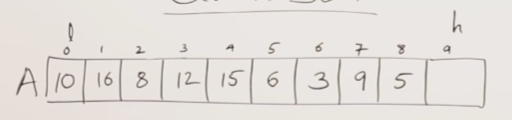 l h
0 1 2 3 4 5 6 7 8 9
A 10 16 8 12 15 6 3 9 5